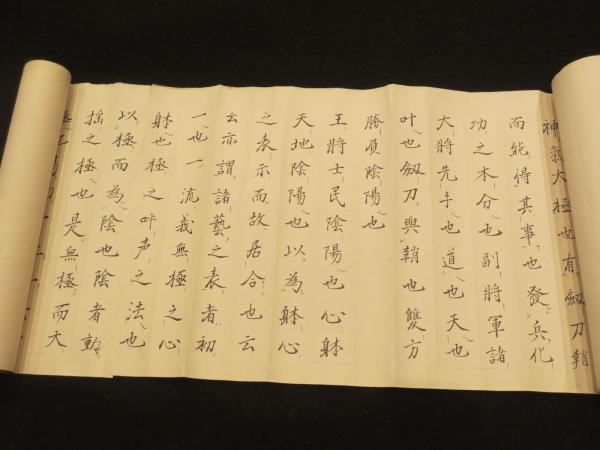 神氣大極也有劔刀鞘
而能得其事也發兵化
功之本分也副將軍諸
大將先手也道也天也
叶也劔刀與鞘也雙方
勝負陰陽也
王將士民陰陽也心躰
天地陰陽也以為躰心
之表示而故居合也云
云亦謂諸藝之表者初
一也一流義無極之心
躰也極之呼声之法也
以極而為陰也陰者動
揺之極也是無極而大